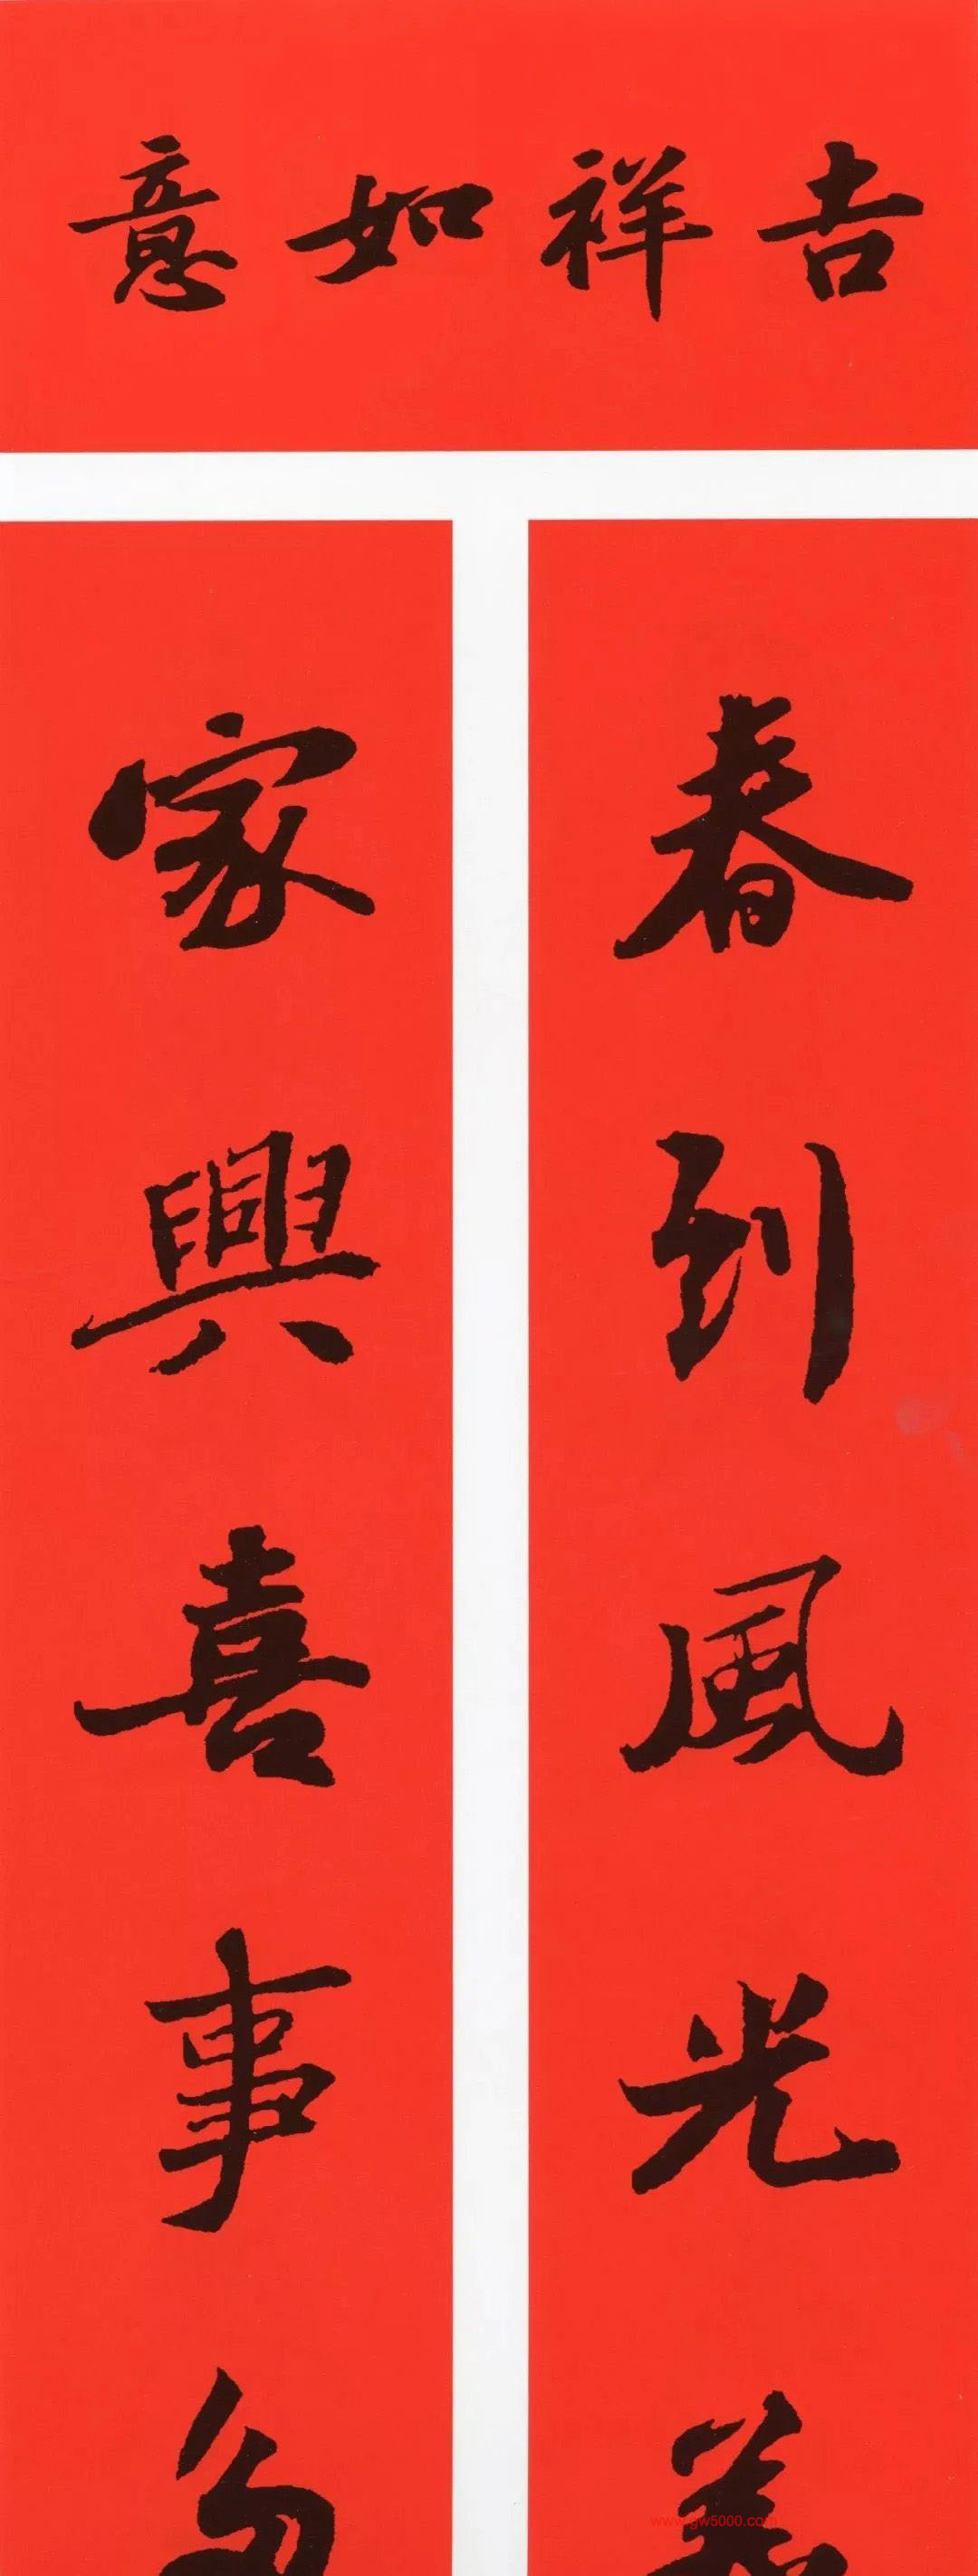 吉祥如意
春到風光美
家興喜事多
www.gw5000.com